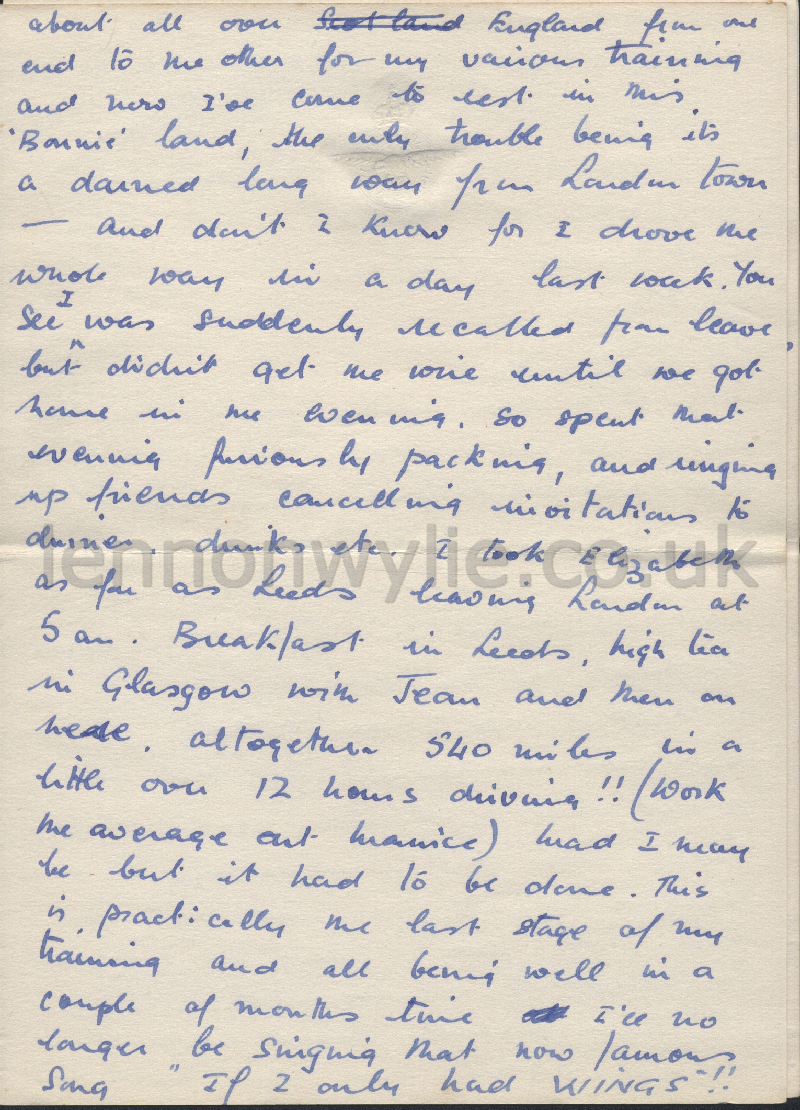 about all over Scotland England from one
end to the other for my various training
and now I've come to rest in this
'Bonnie' land, the only trouble being its
a darned long way from London town
— and don't I know for I drove the
whole way in a day last week. You
see I was suddenly recalled from leave,
but didn't get the wire until we got
home in the evening. So spent that
evening furiously packing, and ringing
up friends cancelling invitations to
dinner, drinks etc. I took Elizabeth
lennonwylie.co.uk
as far as Leeds leaving London at
5 am. Breakfast in Leeds, high tea
in Glasgow with Jean and then on
here, altogether 540 miles in a
little over 12 hours driving!! (Work
the average out Maurice) mad I may
be but it had to be done. This
is practically the last stage of my
training and all being well in a
couple of months time I'll no
longer be singing that now famous
song "If I only had WINGS"!!